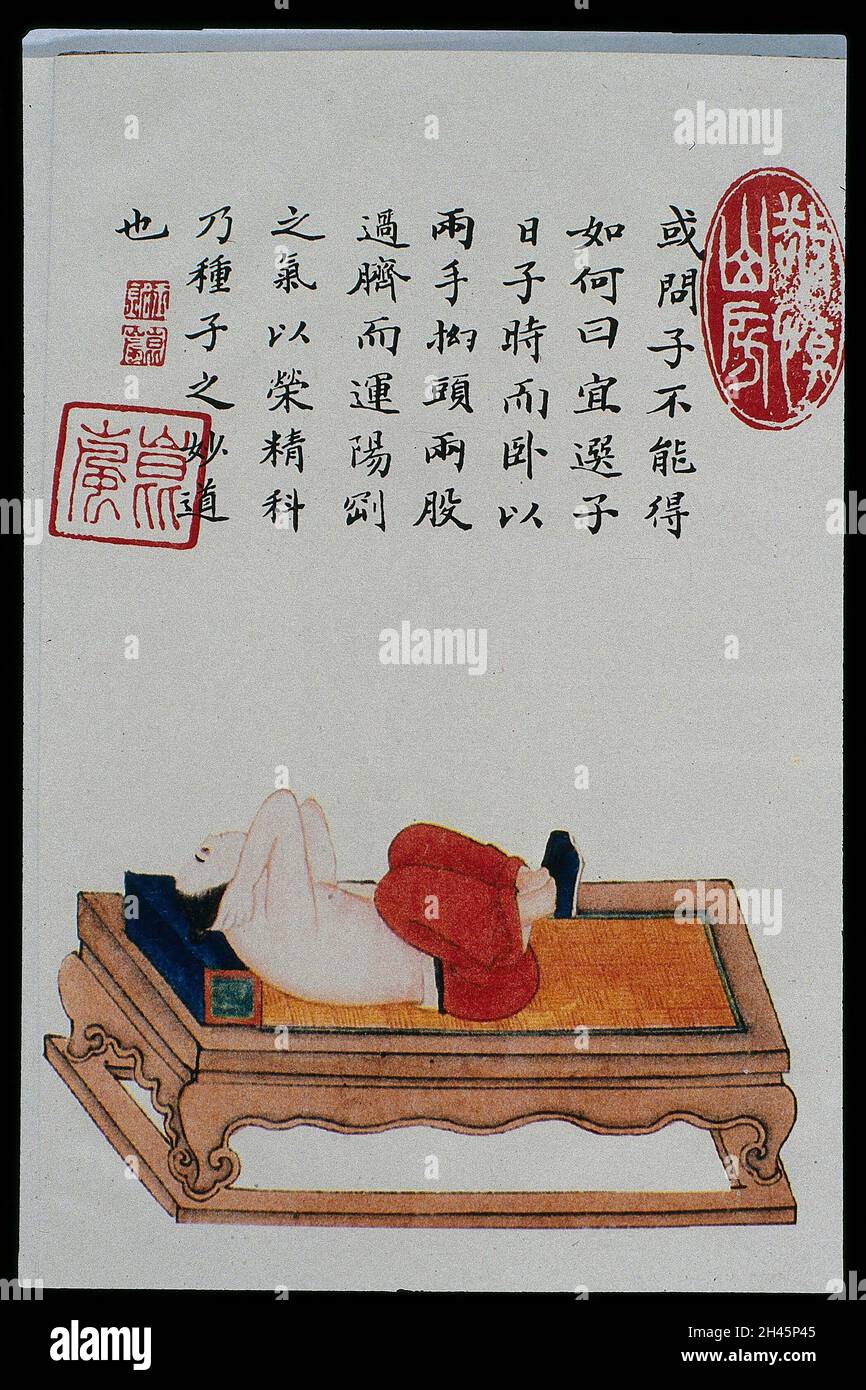 或問子不能得
如何曰宜選子
日子時而卧以
兩手抝頭兩股
過臍而運陽剛
之氣以榮精科
乃種子之妙道
也
山房
alamy
Image ID: H45P45
www.alamy.com